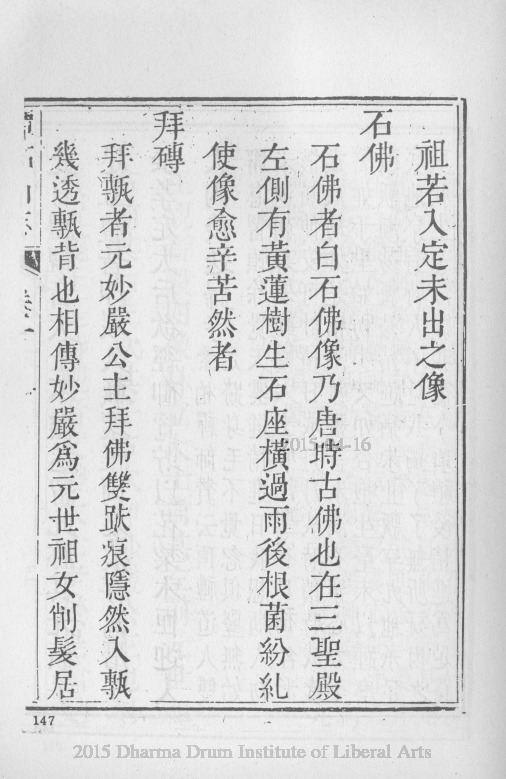 祖若入定未出之像
石佛
石佛者白石佛像乃唐時古佛也在三聖殿
左側有黃蓮樹生石座橫過雨後根菌紛紮
使像愈辛苦然者
拜磚
拜甎者元妙嚴公主拜佛雙趺痕隱然入甎
幾透甎背也相傳妙嚴為元世祖女削髮居
147
2015-04-16
2015 Dharma Drum Institute of Liberal Arts